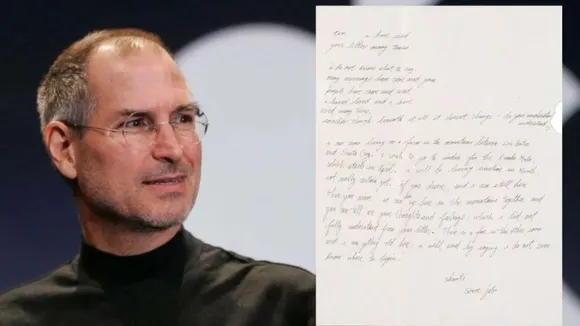 tim, i have read
your letter many times
i do not know what to say.
many mornings have come and gone
people have came and went
i have loved and i have
cried many times.
somehow though beneath it all it doesnt change - do you understand
understand
i am now living on a farm in the mountains between Los Gatos
and Santa Cruz. i wish to go to india for the kumba mela,
which starts in april. i will be leaving sometime in March
not really certain yet. if you desire, and i am still here
then you come, we can be here in the mountains together and
you can tell me your thoughts and feelings which i did not
fully understand from your letter. There is a fire in the other room
and i am getting cold here. i will end by saying i do not, even
know where to begin.
shanti
steve jobs